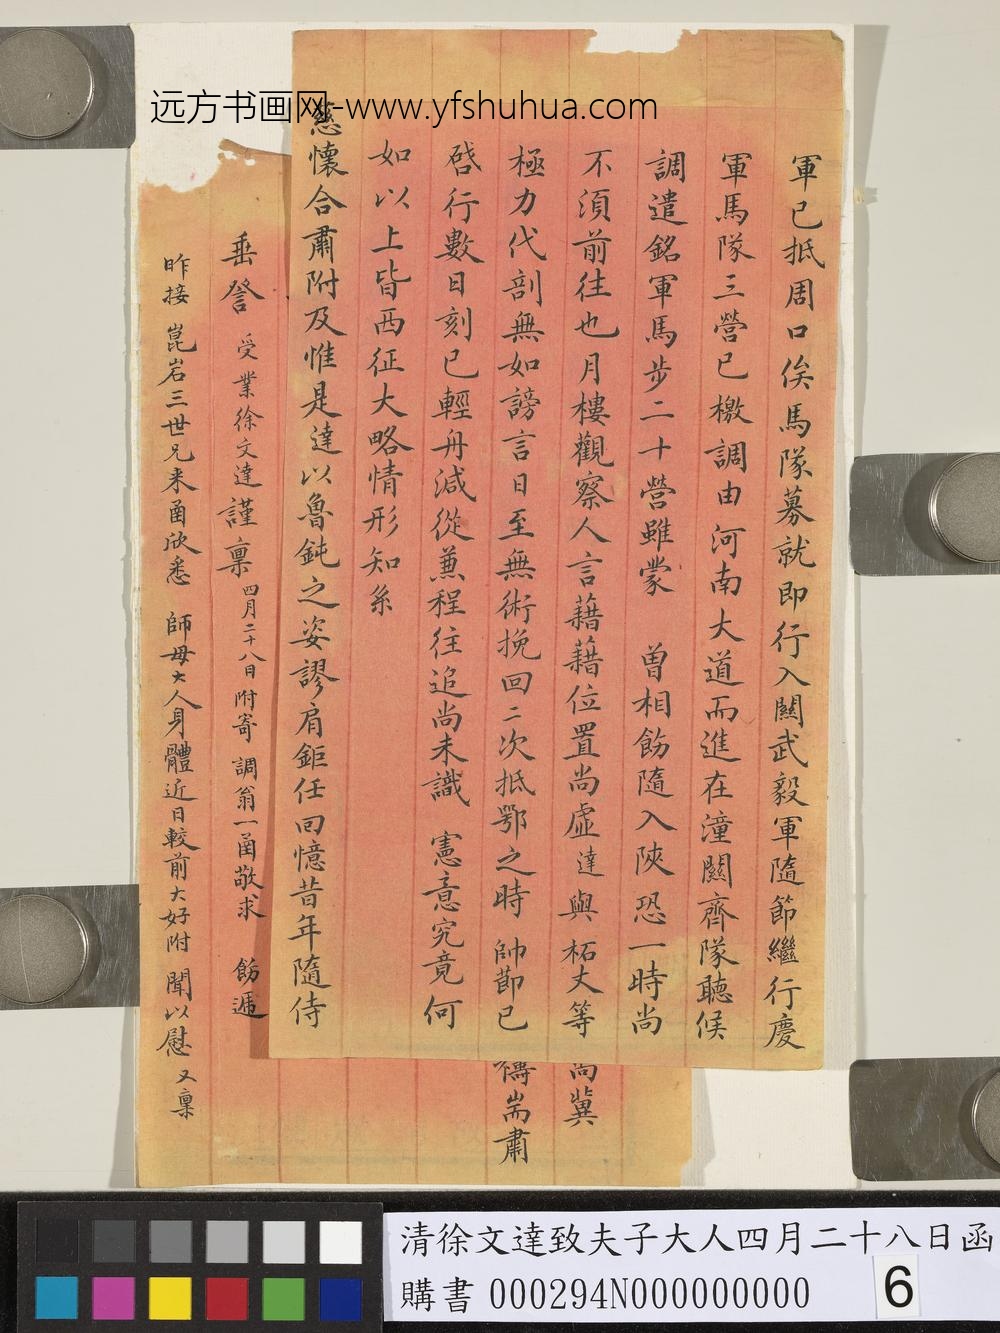 远方书画网-www.yfshuhua.com
軍已抵周口俟馬隊募就即行入關武毅軍隨節繼行慶
軍馬隊三營已檄調由河南大道而進在潼關齊隊聽候
調遣銘軍馬步二十營雖蒙 曾相飭隨入陝恐一時尚
不須前往也月樓觀察人言藉藉位置尚虛達與柘丈等
極力代剖無如謗言日至無術挽回二次抵鄂之時 帥節已
啓行數日刻已輕舟減從兼程往追尚未識 憲意究竟何
如以上皆西征大略情形知系
慈懷合肅附及惟是達以魯鈍之姿謬肩鉅任回憶昔年隨侍
尚冀
禱耑肅
垂詧 受業徐文達謹稟 四月二十八日 附寄 調翁一函敬求 飭遞
昨接 崑岩三世兄来函欣悉 師母大人身體近日較前大好附 聞以慰 又稟
清徐文達致夫子大人四月二十八日函
購書 000294N000000000 6